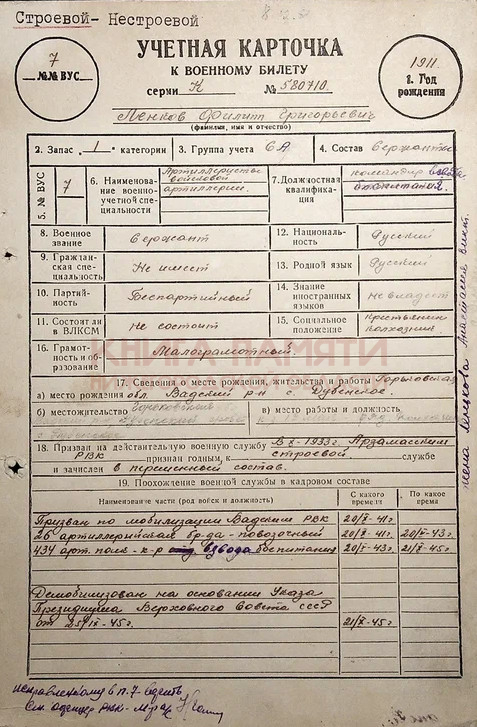 Строевой- Нестроевой
8 12. 51
7
№№ ВУС
УЧЕТНАЯ КАРТОЧКА
К ВОЕННОМУ БИЛЕТУ
серии К № 580710
1911
8. Год рождения
Пенков Филипп Григорьевич
(фамилия, имя и отчество)
2. Запас 1 категории
3. Группа учета 6А
4. Состав сержанты
5. № ВУС 7
6. Наименование военно-учетной специальности
Артиллеристы войсковой артиллерии.
7. Должностная квалификация
командир
8. Военное звание
сержант
12. Национальность
Русский
9. Гражданская специальность
Не имеет
13. Родной язык
Русский
10. Партийность
Беспартийный
14. Знание иностранных языков
не владеет
11. Состоит ли в ВЛКСМ
не состоит
15. Социальное положение
крестьянин колхозник
16. Грамотность и образование
Малограмотный
КНИГА ПАМЯТИ
17. Сведения о месте рождения, жительства и работы Горьковская
а) место рождения обл. Вадский р-н с. Дубенское.
б) местожительство
в) место работы и должность
18. Призван на действительную военную службу в X-1933г. Арзамасским
РВК признан годным, к строевой службе
и зачислен в переменный состав.
19. Похождение военной службы в кадровом составе
Наименование части (род войск и должность)
С какого времени
По какое время
Призван по мобилизации Вадским РВК 20/X-41г
26 артиллерийская бр-да - повозочный 20/X-41г. 20/X-43г
434 арт. полк - к-р взвода 20/X-43г. 21/X-45г
Демобилизован на основании Указа
Президиума Верховного Совета СССР
от 25/IX-45г. 21/X-45г.
исправленному в п. 7 верить
жена Пенкова Анастасия